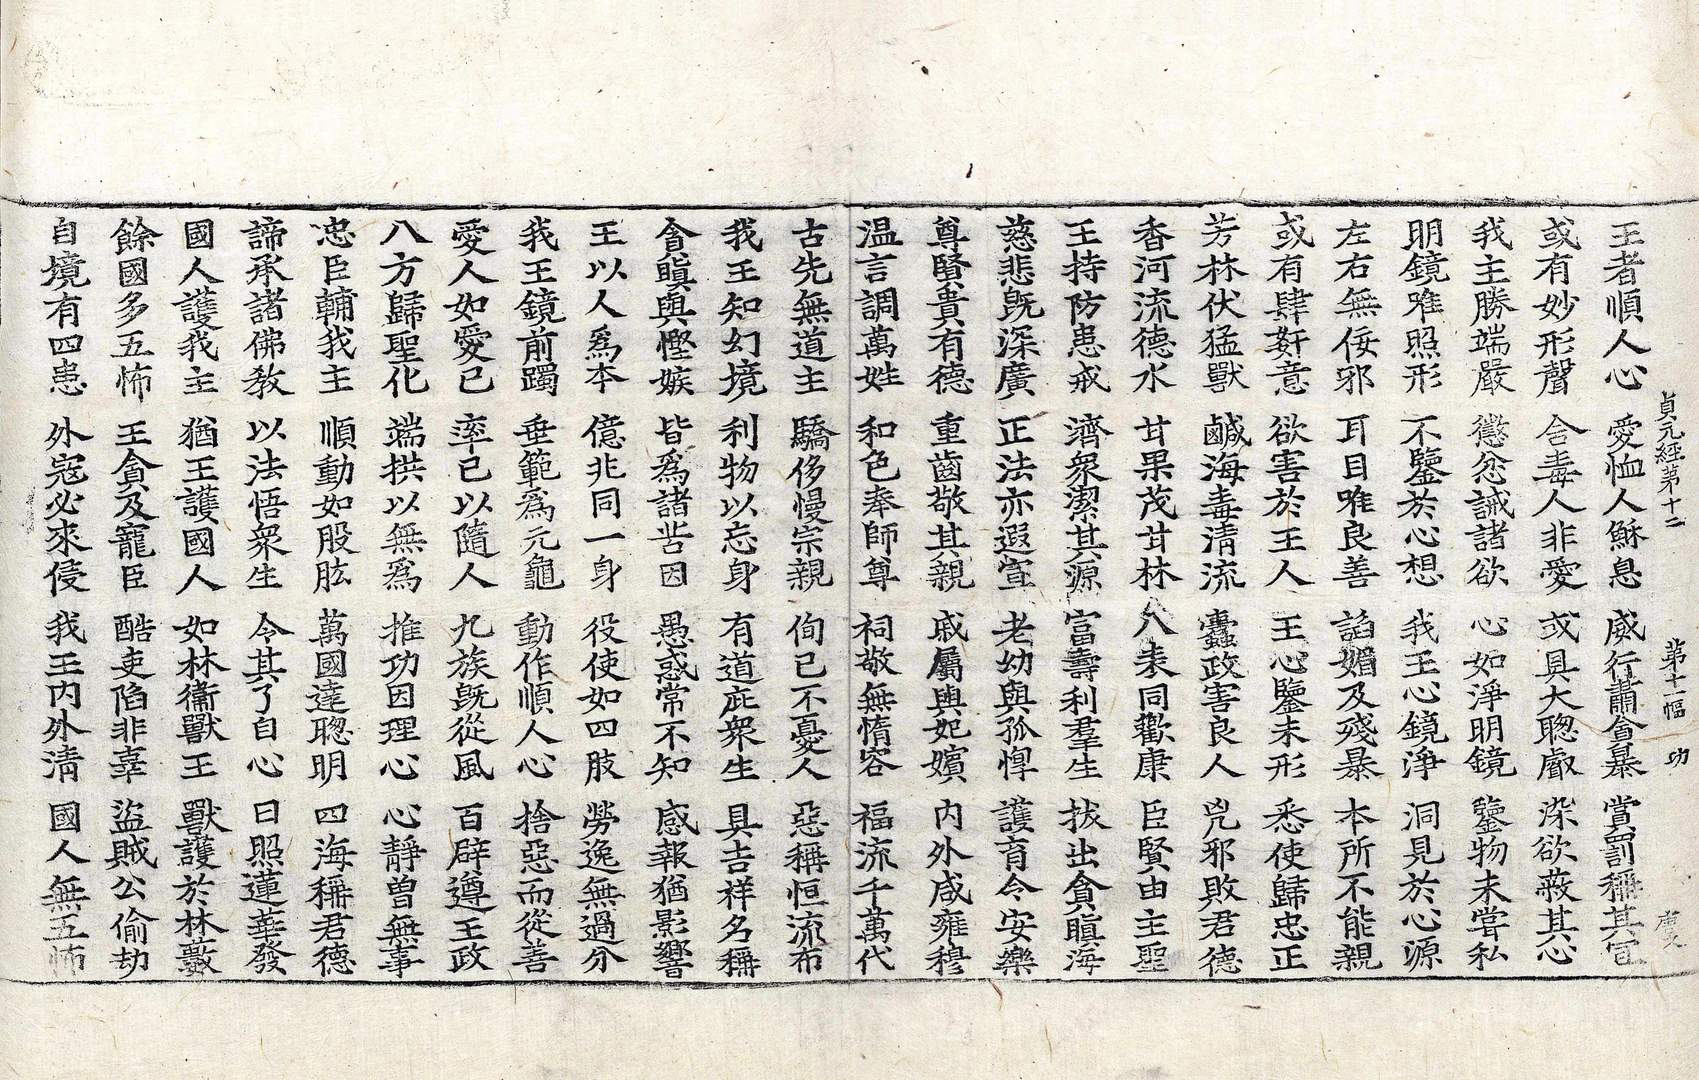 貞元經第十二 第十一幅 功
王者順人心 愛恤人穌息 威行肅會暴 賞罰稱其宜
或有妙形聲 含毒人非愛 或具大聰叡 染欲蔽其心
我主勝端嚴 懲忿誡諸欲 心如淨明鏡 鑒物未甞私
明鏡唯照形 不鑒於心想 我王心鏡淨 洞見於心源
左右無佞邪 耳目唯良善 諂媚及殘暴 本所不能親
或有肆姧意 欲害於王人 王心鑒未形 悉使歸忠正
芳林伏猛獸 鹹海毒清流 蠹政害良人 兇邪敗君德
香河流德水 甘果茂甘林 八表同歡康 臣賢由主聖
王持防患戒 濟衆潔其源 富壽利羣生 拔出貪瞋海
慈悲旣深廣 正法亦遐宣 老幼與孤惸 護育令安樂
尊賢貴有德 重齒敬其親 戚屬與妃嬪 內外咸雍穆
温言調萬姓 和色奉師尊 祠敬無惰容 福流千萬代
古先無道主 驕侈慢宗親 徇已不憂人 惡稱恒流布
我王知幻境 利物以忘身 有道庇衆生 具吉祥名稱
貪瞋與慳嫉 皆爲諸苦因 愚惑常不知 感報猶影響
王以人爲本 億兆同一身 役使如四肢 勞逸無過分
我王鏡前躅 垂範爲元龜 動作順人心 捨惡而從善
愛人如愛已 率已以隨人 九族旣從風 百辟遵王政
八方歸聖化 端拱以無爲 推功因理心 心靜曽無事
忠臣輔我主 順動如股肱 萬國達聰明 四海稱君德
諦承諸佛敎 以法悟衆生 令其了自心 日照蓮華發
國人護我主 猶王護國人 如林衞獸王 獸護於林藪
餘國多五怖 王貪及寵臣 酷吏陷非辜 盜賊公偷劫
自境有四患 外寇必來侵 我王內外清 國人無五怖